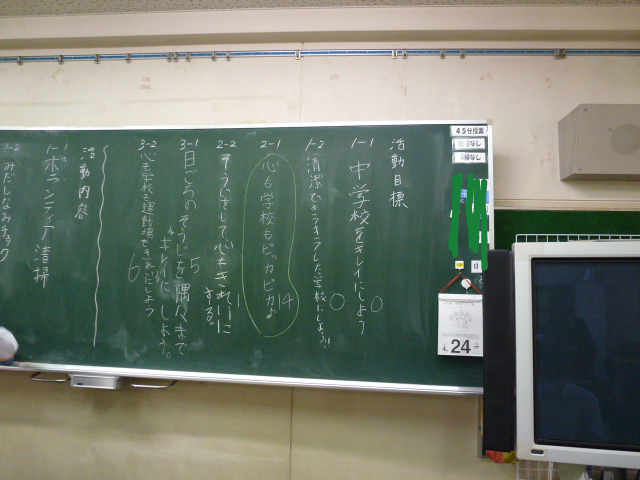 45分授業
なし
なし
活動目標
1-1 中学校をキレイにしよう 0
1-2 清潔でキラキラした学校にしよう!! 0
2-1 心も学校もピッカピカ♪ 14
2-2 そうじをして心もきれいに
する。 1
3-1 日ごろのそうじを隅々まで
キレイにしよう。 5
3-2 心も学校も運動場もきれいにしよう 6
活動内容
1-1 ボランティア清掃
1-2 みだしなみチェック
4 24